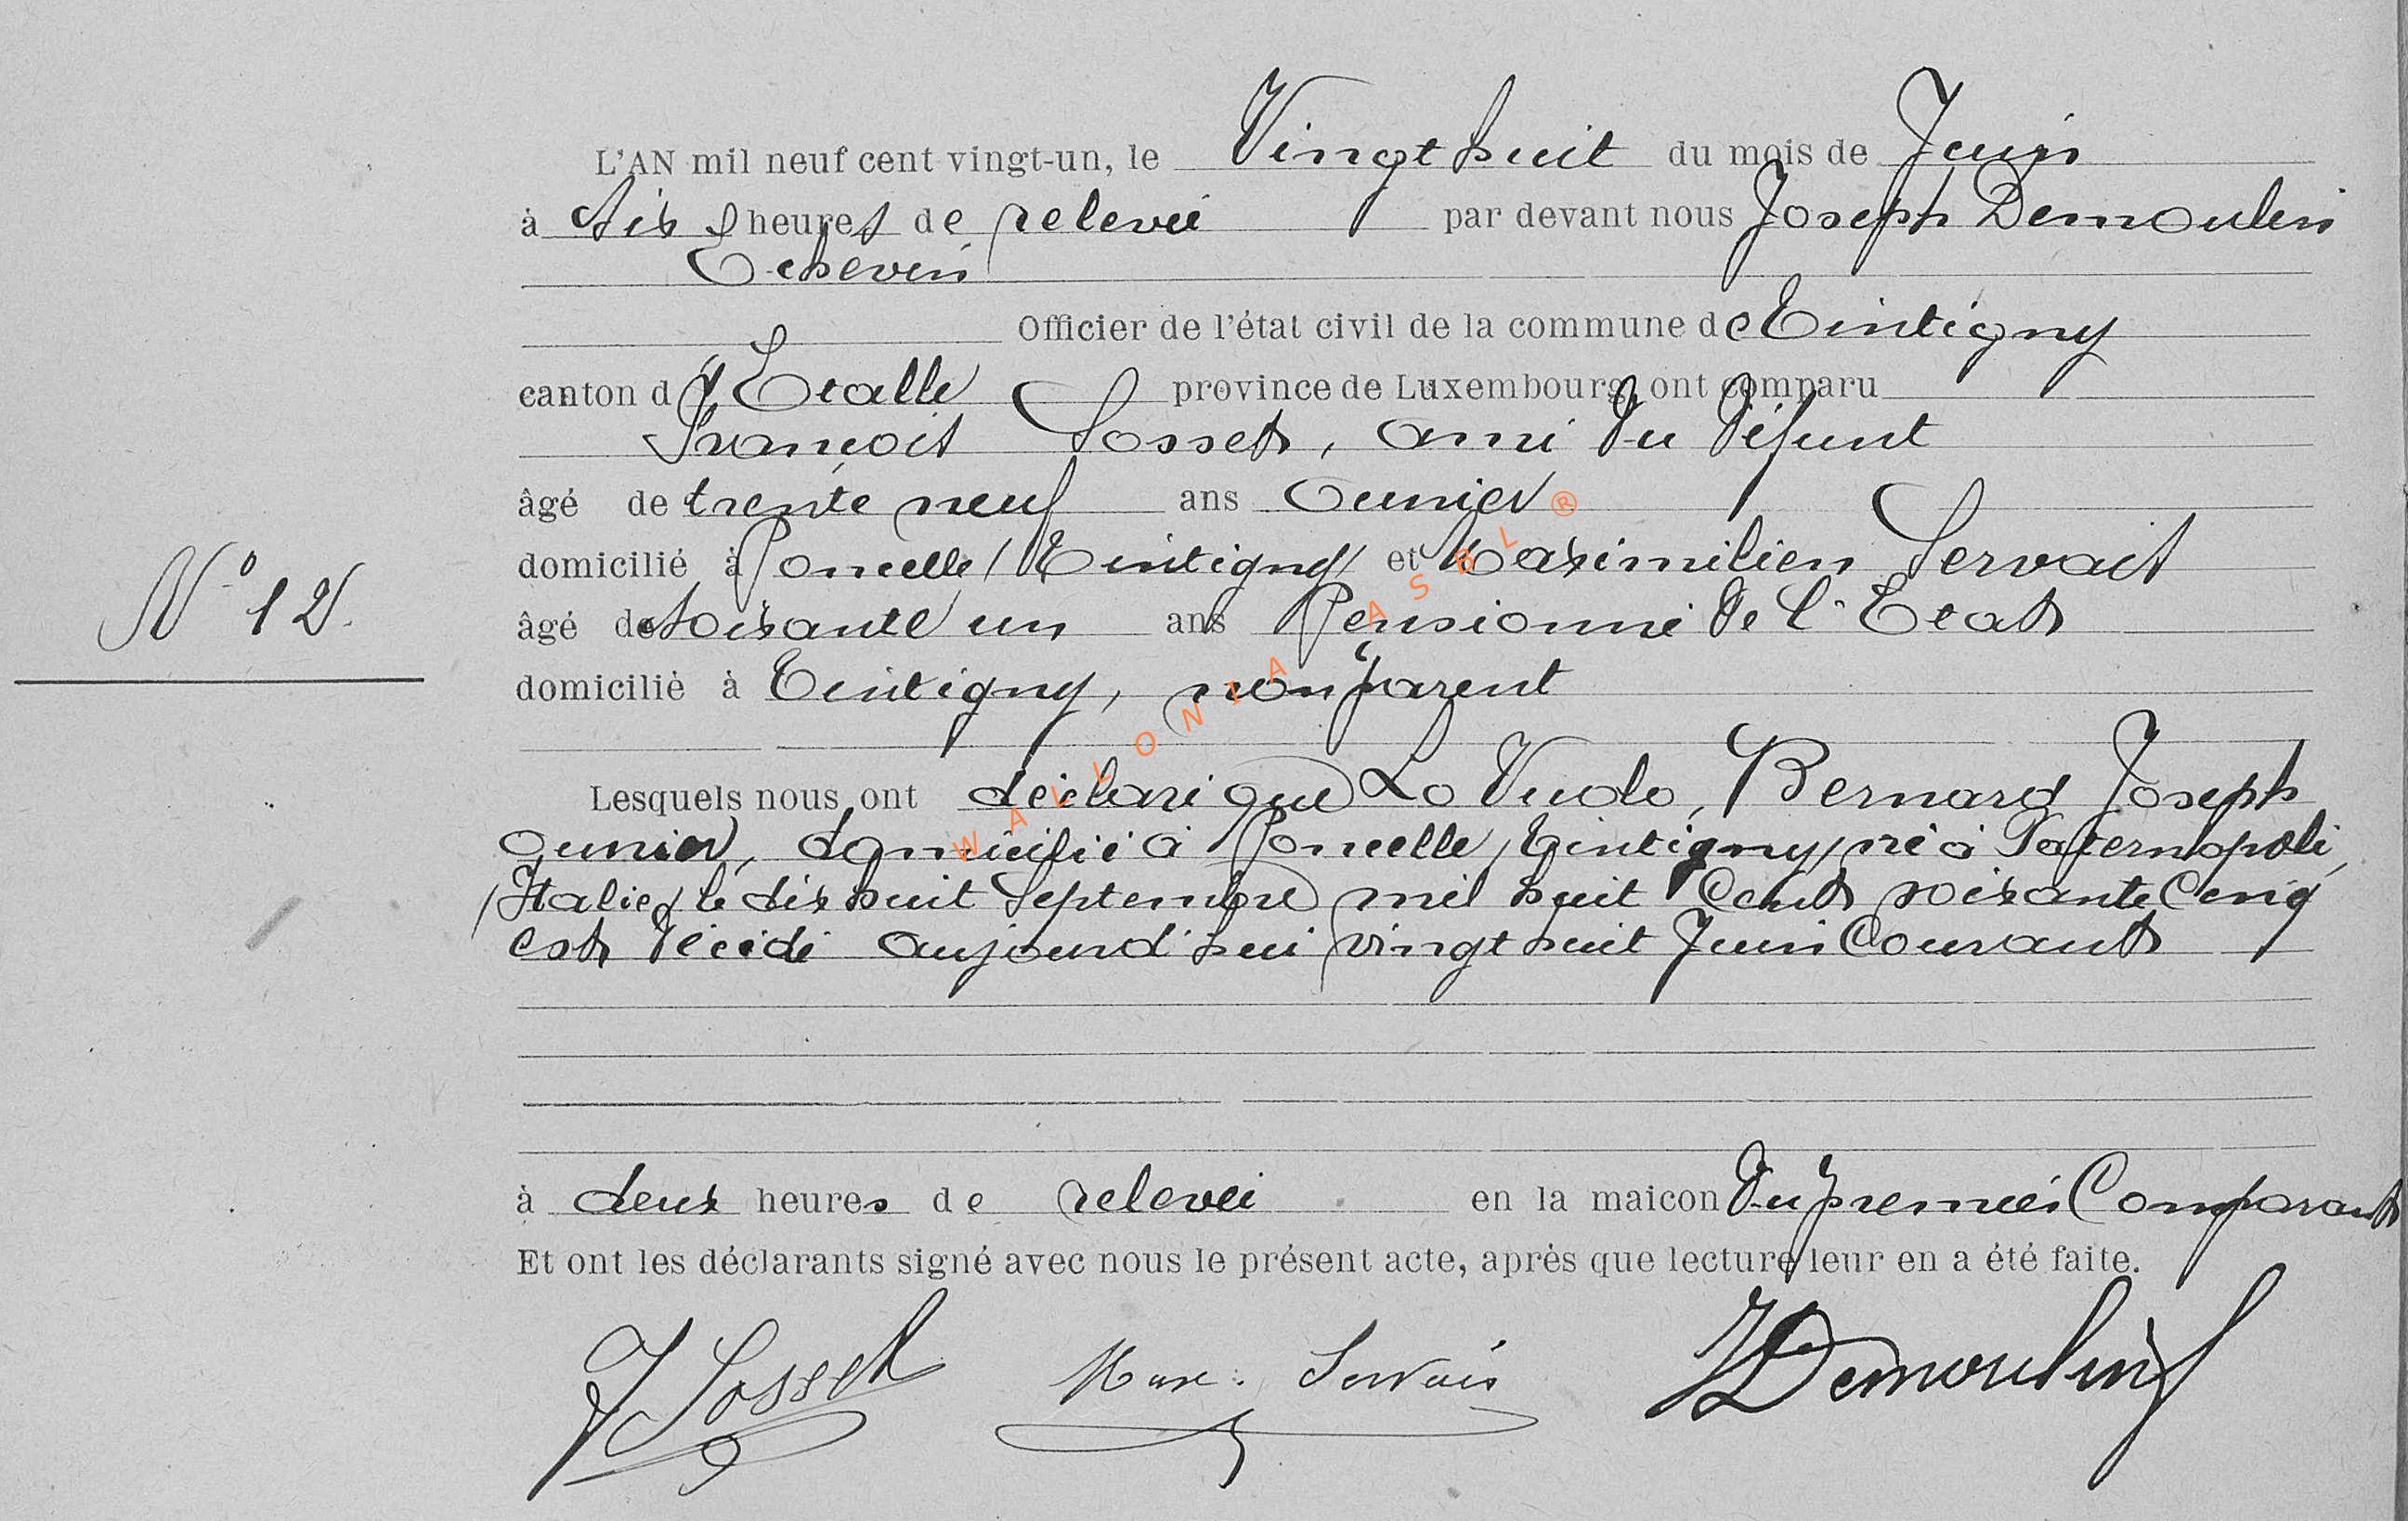 L'AN mil neuf cent vingt-un, le Vingt huit du mois de Juin
à six heures de relevée par devant nous Joseph Demoulin
Echevin
Officier de l'état civil de la commune de Tintigny
canton d'Etalle province de Luxembourg, ont comparu
François Sosset, ami du défunt
âgé de trente neuf ans ouvrier
domicilié à Poncelle (Tintigny) et Maximilien Servais
N° 12
âgé de soixante un ans Pensionné de l'Etat
domicilié à Tintigny, non parent
Lesquels nous ont déclaré que Lo Vuolo, Bernard Joseph
ouvrier, domicilié à Poncelle (Tintigny) né à Paternopoli
(Italie) le dix huit Septembre mil huit Cent soixante Cinq
est décédé aujourd'hui vingt huit Juin Courant
à deux heures de relevée en la maicon du premier Comparant
Et ont les déclarants signé avec nous le présent acte, après que lecture leur en a été faite.
F Sosset Max. Servais J Demoulin
WALLONIA ASBL ®